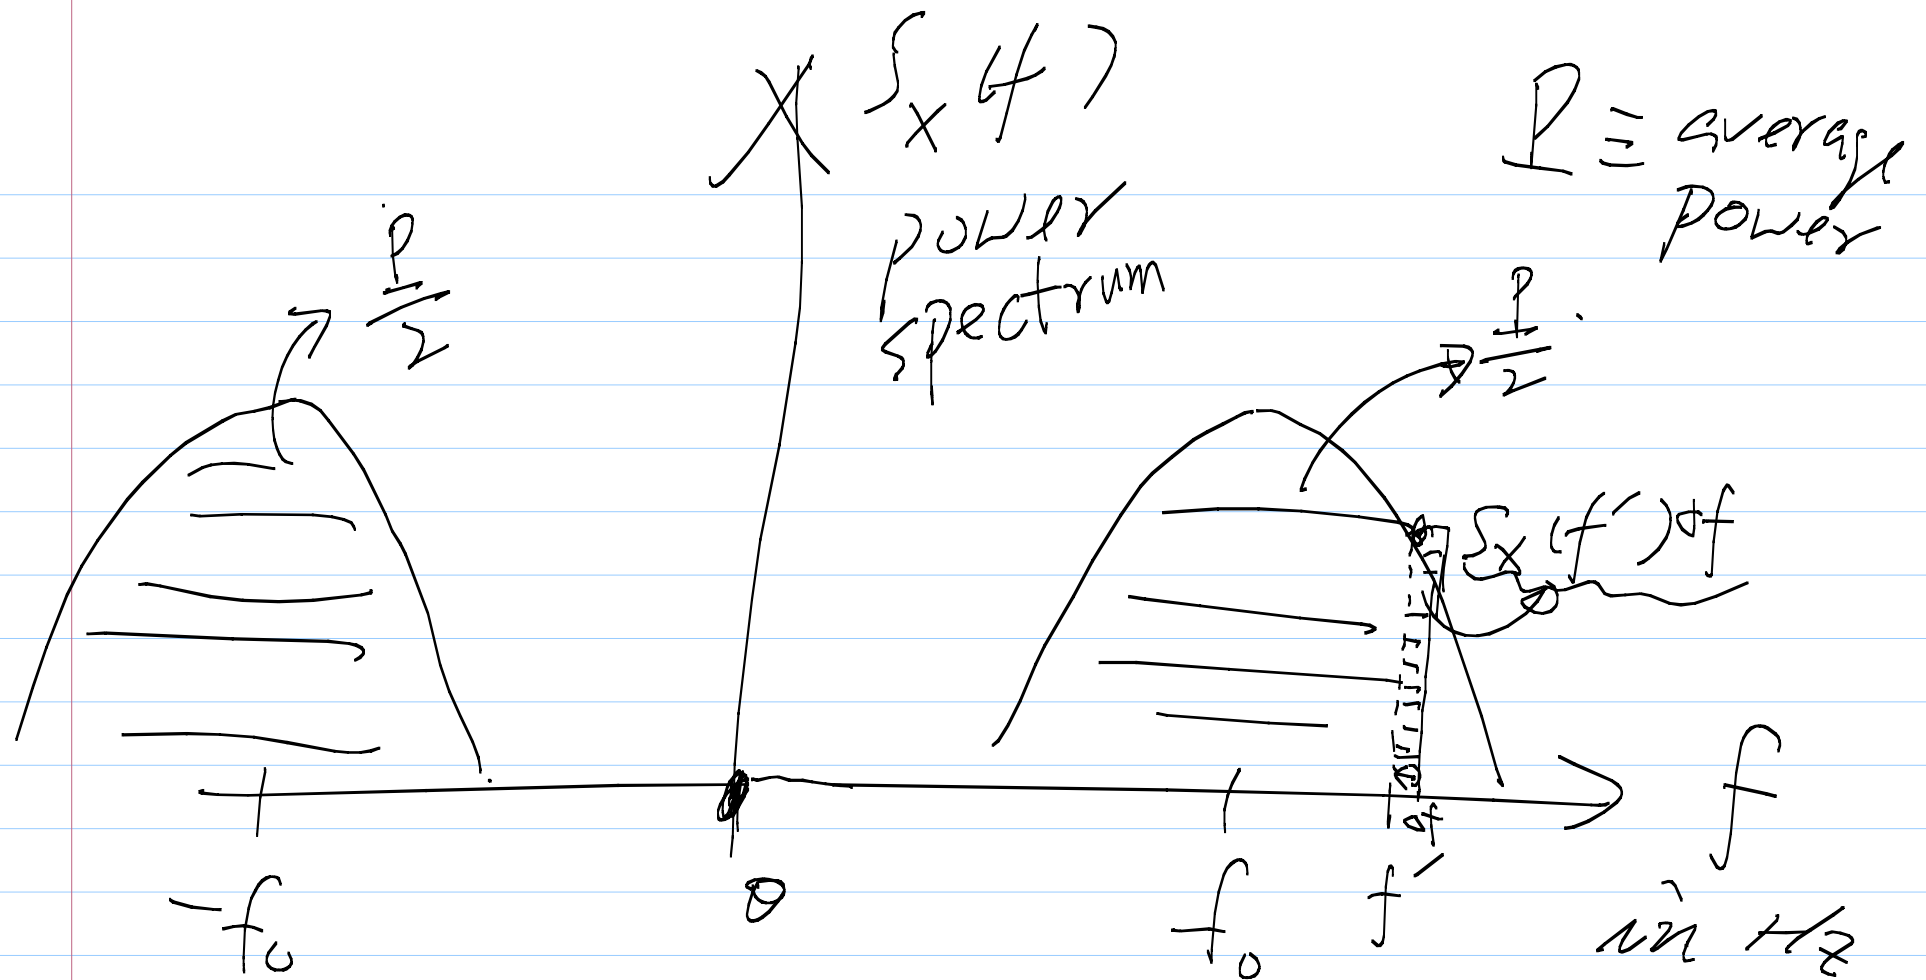 S_x(f)
power
spectrum
P ≡ average
power
P/2
P/2
S_x(f′)df
df
-f_0
0
f_0
f′
f
in Hz